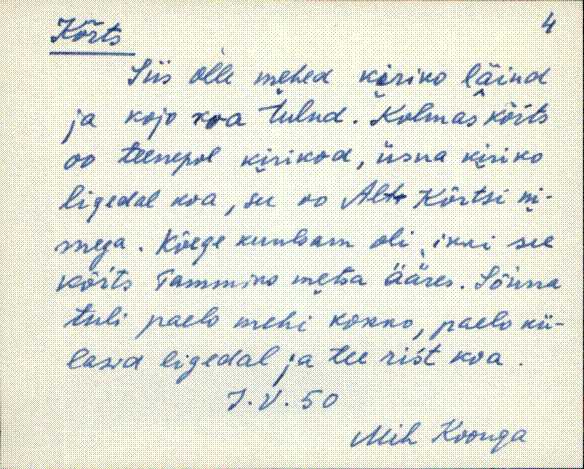 4
Kõrts
Siis òlle mehed kiriko läind
ja kojo koa tulnd. Kolmas kõrts
oo teenepol kirikod, üsna kiriko
ligedal koa, su oo Alt Kõrtsi ni-
mega. Kõege kuulsam oli ikki see
kõrts Tammiko metsa ääres. Sõnna
tuli paelo mehi kokko, paelo kü-
lasid ligedal ja tee rist koa.
J. V. 50
Mih Koonga